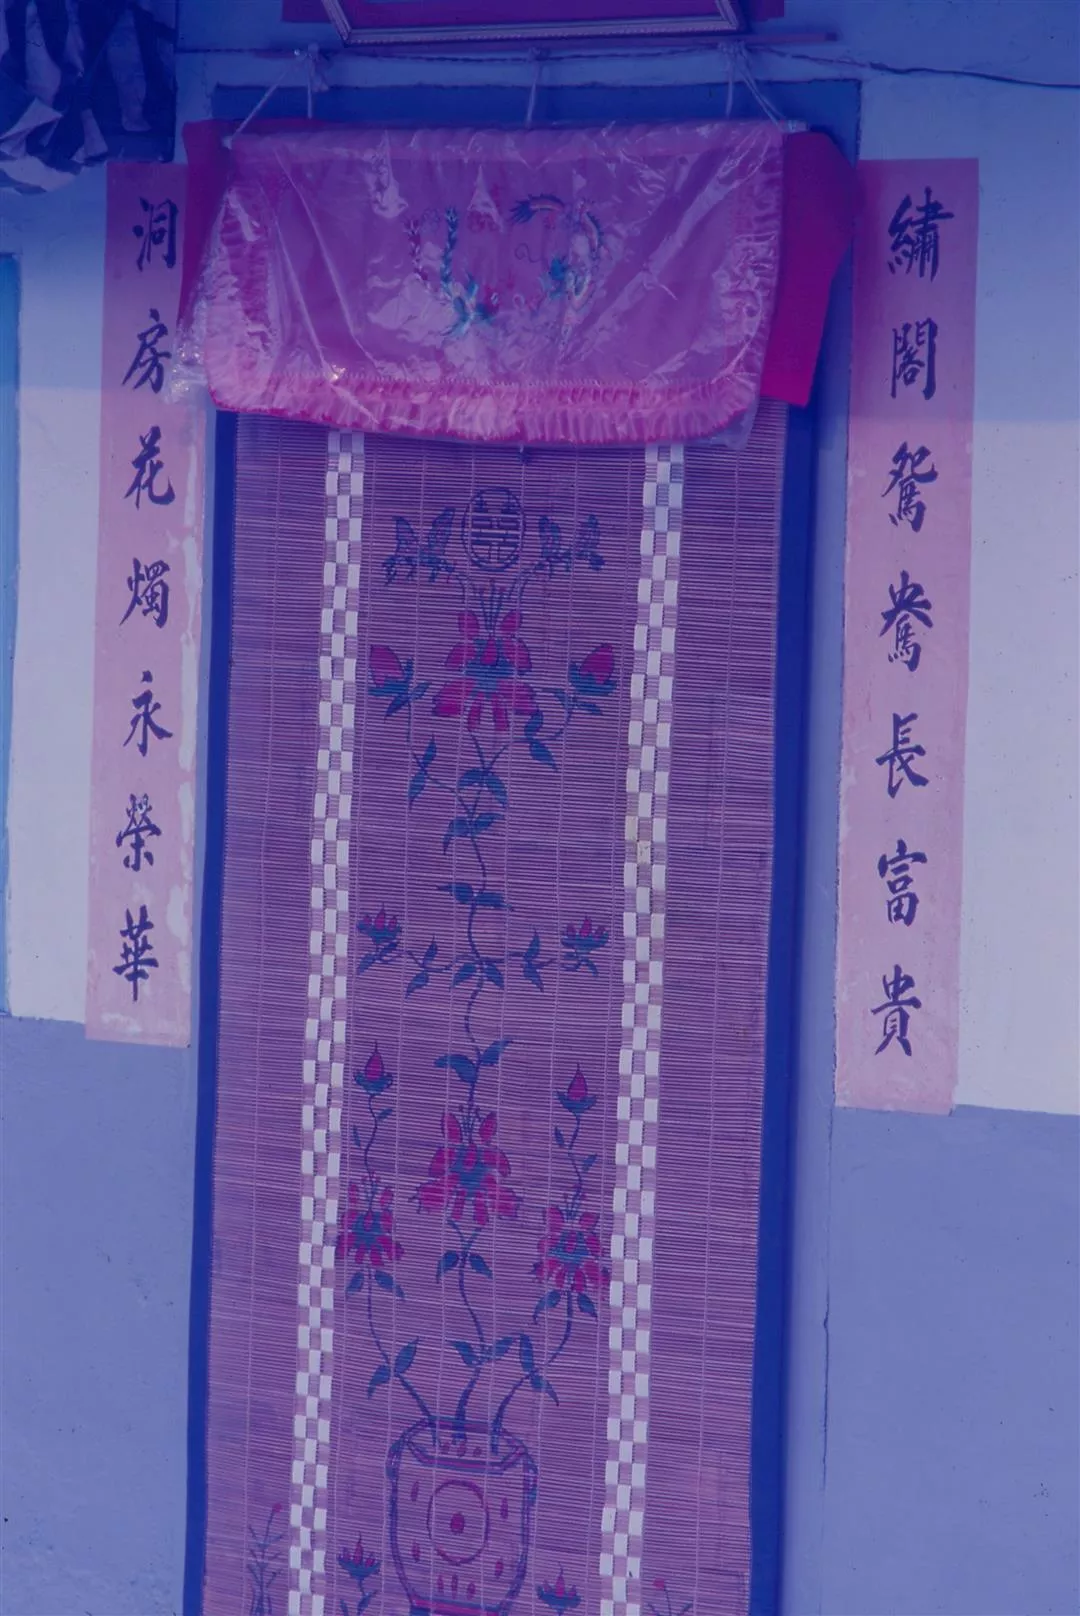 繡閣鴛鴦長富貴
洞房花燭永榮華
囍